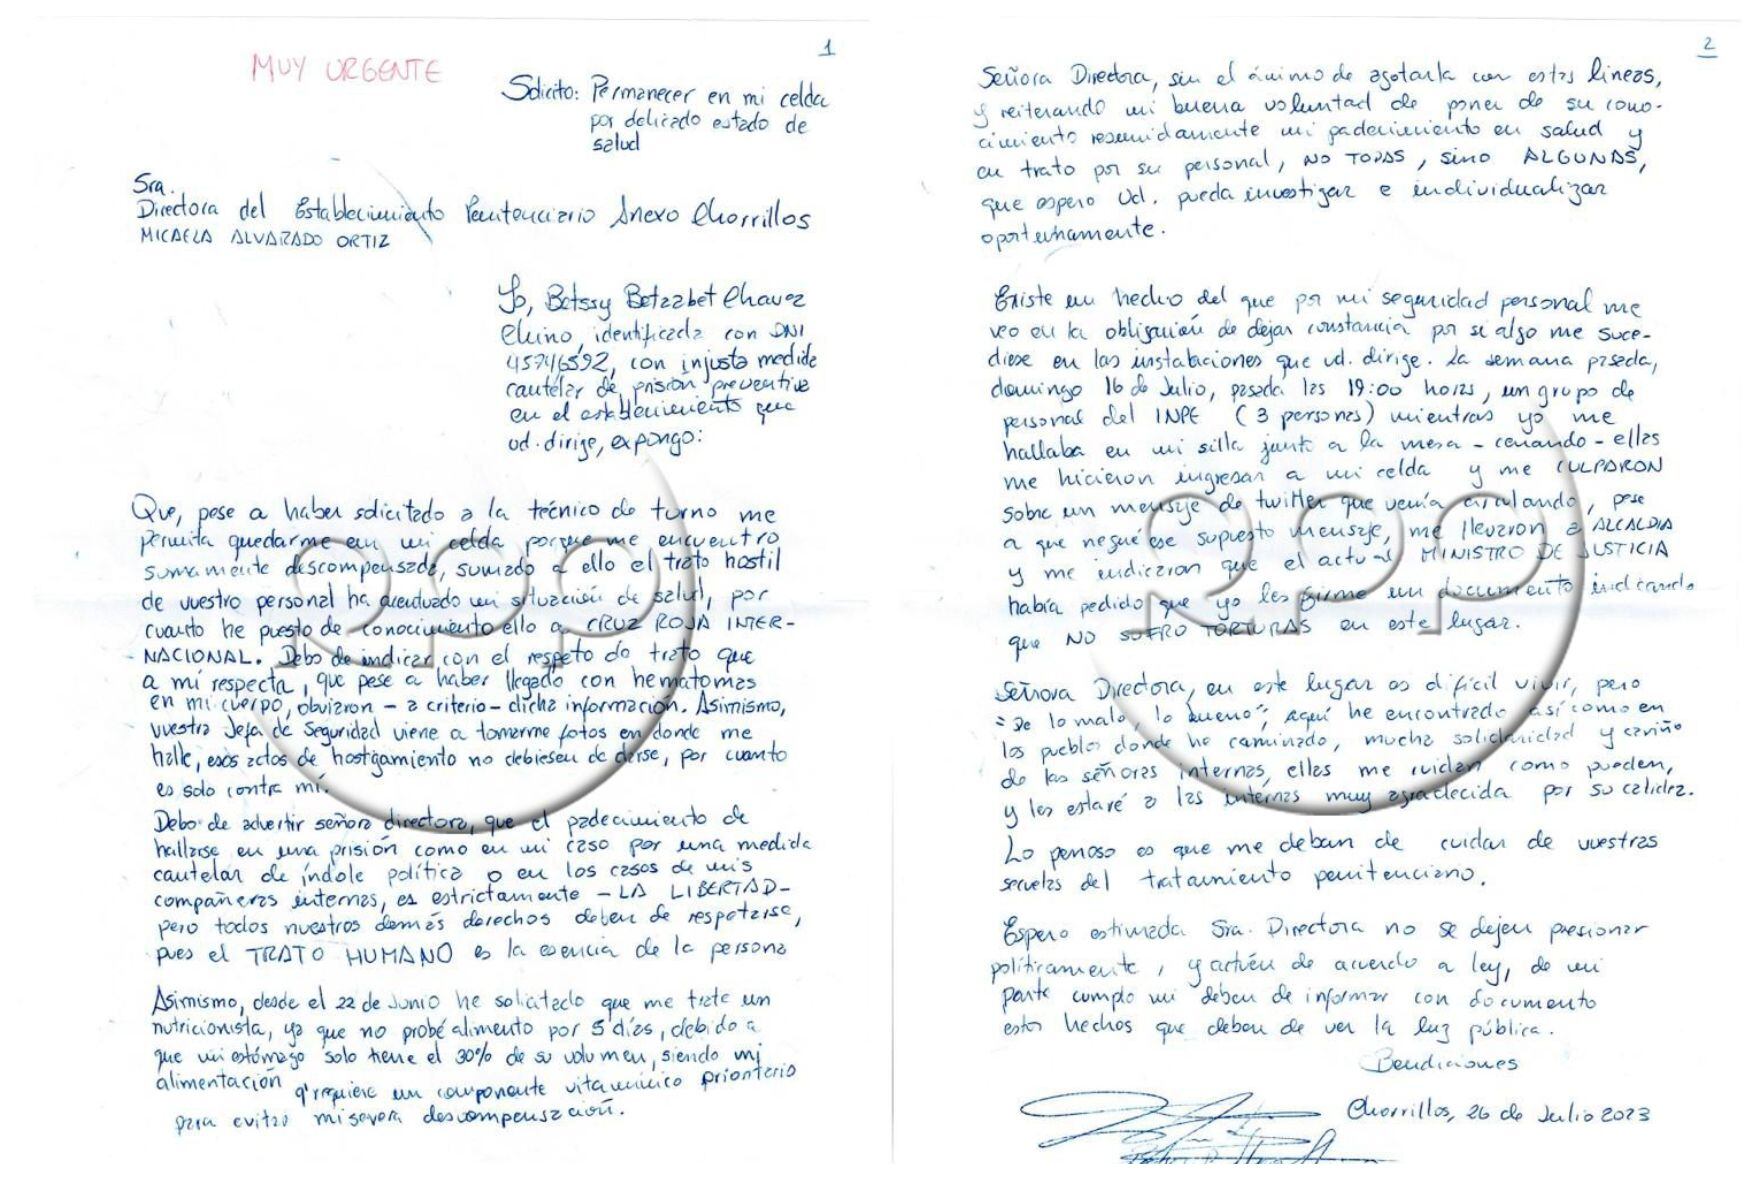 1
MUY URGENTE
Solicito: Permanecer en mi celda
por delicado estado de
salud
Sra.
Directora del Establecimiento Penitenciario Anexo Chorrillos
MICAELA ALVARADO ORTIZ
Yo, Betssy Betzabet Chavez
Chino, identificada con DNI
45746592, con injusta medida
cautelar de prisión preventiva
en el establecimiento que
ud. dirige, expongo:
Que, pese a haber solicitado a la técnico de turno me
permita quedarme en mi celda porque me encuentro
sumamente descompensada, sumado a ello el trato hostil
de vuestro personal ha acentuado mi situación de salud, por
cuanto he puesto de conocimiento ello a CRUZ ROJA INTER-
NACIONAL. Debo de indicar con el respeto do trato que
a mí respecta, que pese a haber llegado con hematomas
en mi cuerpo, obviaron - a criterio - dicha información. Asimismo,
vuestra Jefa de Seguridad viene a tomarme fotos en donde me
halle, esos actos de hostigamiento no debiesen de darse, por cuanto
es solo contra mí.
Debo de advertir señora directora, que el padecimiento de
hallarse en una prisión como en mi caso por una medida
cautelar de índole política o en los casos de mis
compañeras internas, es estrictamente - LA LIBERTAD -
pero todos nuestros demás derechos deben de respetarse,
pues el TRATO HUMANO es la esencia de la persona
Asimismo, desde el 22 de Junio he solicitado que me trate un
nutricionista, ya que no probé alimento por 5 días, debido a
que mi estómago solo tiene el 30% de su volumen, siendo mi
alimentación q' requiere un componente vitamínico prioritario
para evitar mi severa descompensación.
2
Señora Directora, sin el ánimo de agotarla con estas lineas,
y reiterando mi buena voluntad de poner de su cono-
cimiento resumidamente mi padecimiento en salud y
en trato por su personal, NO TODAS, sino ALGUNAS,
que espero Ud. pueda investigar e individualizar
oportunamente.
Existe un hecho del que por mi seguridad personal me
veo en la obligación de dejar constancia por si algo me suce-
diese en las instalaciones que ud. dirige. La semana pasada,
domingo 16 de Julio, pasada las 19:00 horas, un grupo de
personal del INPE (3 personas) mientras yo me
hallaba en mi silla junto a la mesa - cenando - ellas
me hicieron ingresar a mi celda y me CULPARON
sobre un mensaje de twitter que venía circulando, pese
a que negué ese supuesto mensaje, me llevaron a ALCALDIA
y me indicaron que el actual MINISTRO DE JUSTICIA
había pedido que yo les firme un documento indicando
que NO SUFRO TORTURAS en este lugar.
Señora Directora, en este lugar es difícil vivir, pero
"De lo malo, lo bueno", aquí he encontrado así como en
los pueblos donde he caminado, mucha solidaridad y cariño
de las señoras internas, ellas me cuidan como pueden,
y les estaré a las internas muy agradecida por su calidez.
Lo penoso es que me deban de cuidar de vuestras
secuelas del tratamiento penitenciario.
Espero estimada Sra. Directora no se dejen presionar
políticamente, y actúen de acuerdo a ley, de mi
parte cumplo mi deber de informar con documento
estos hechos que deben de ver la luz pública.
Bendiciones
Chorrillos, 26 de Julio 2023
rpp
rpp